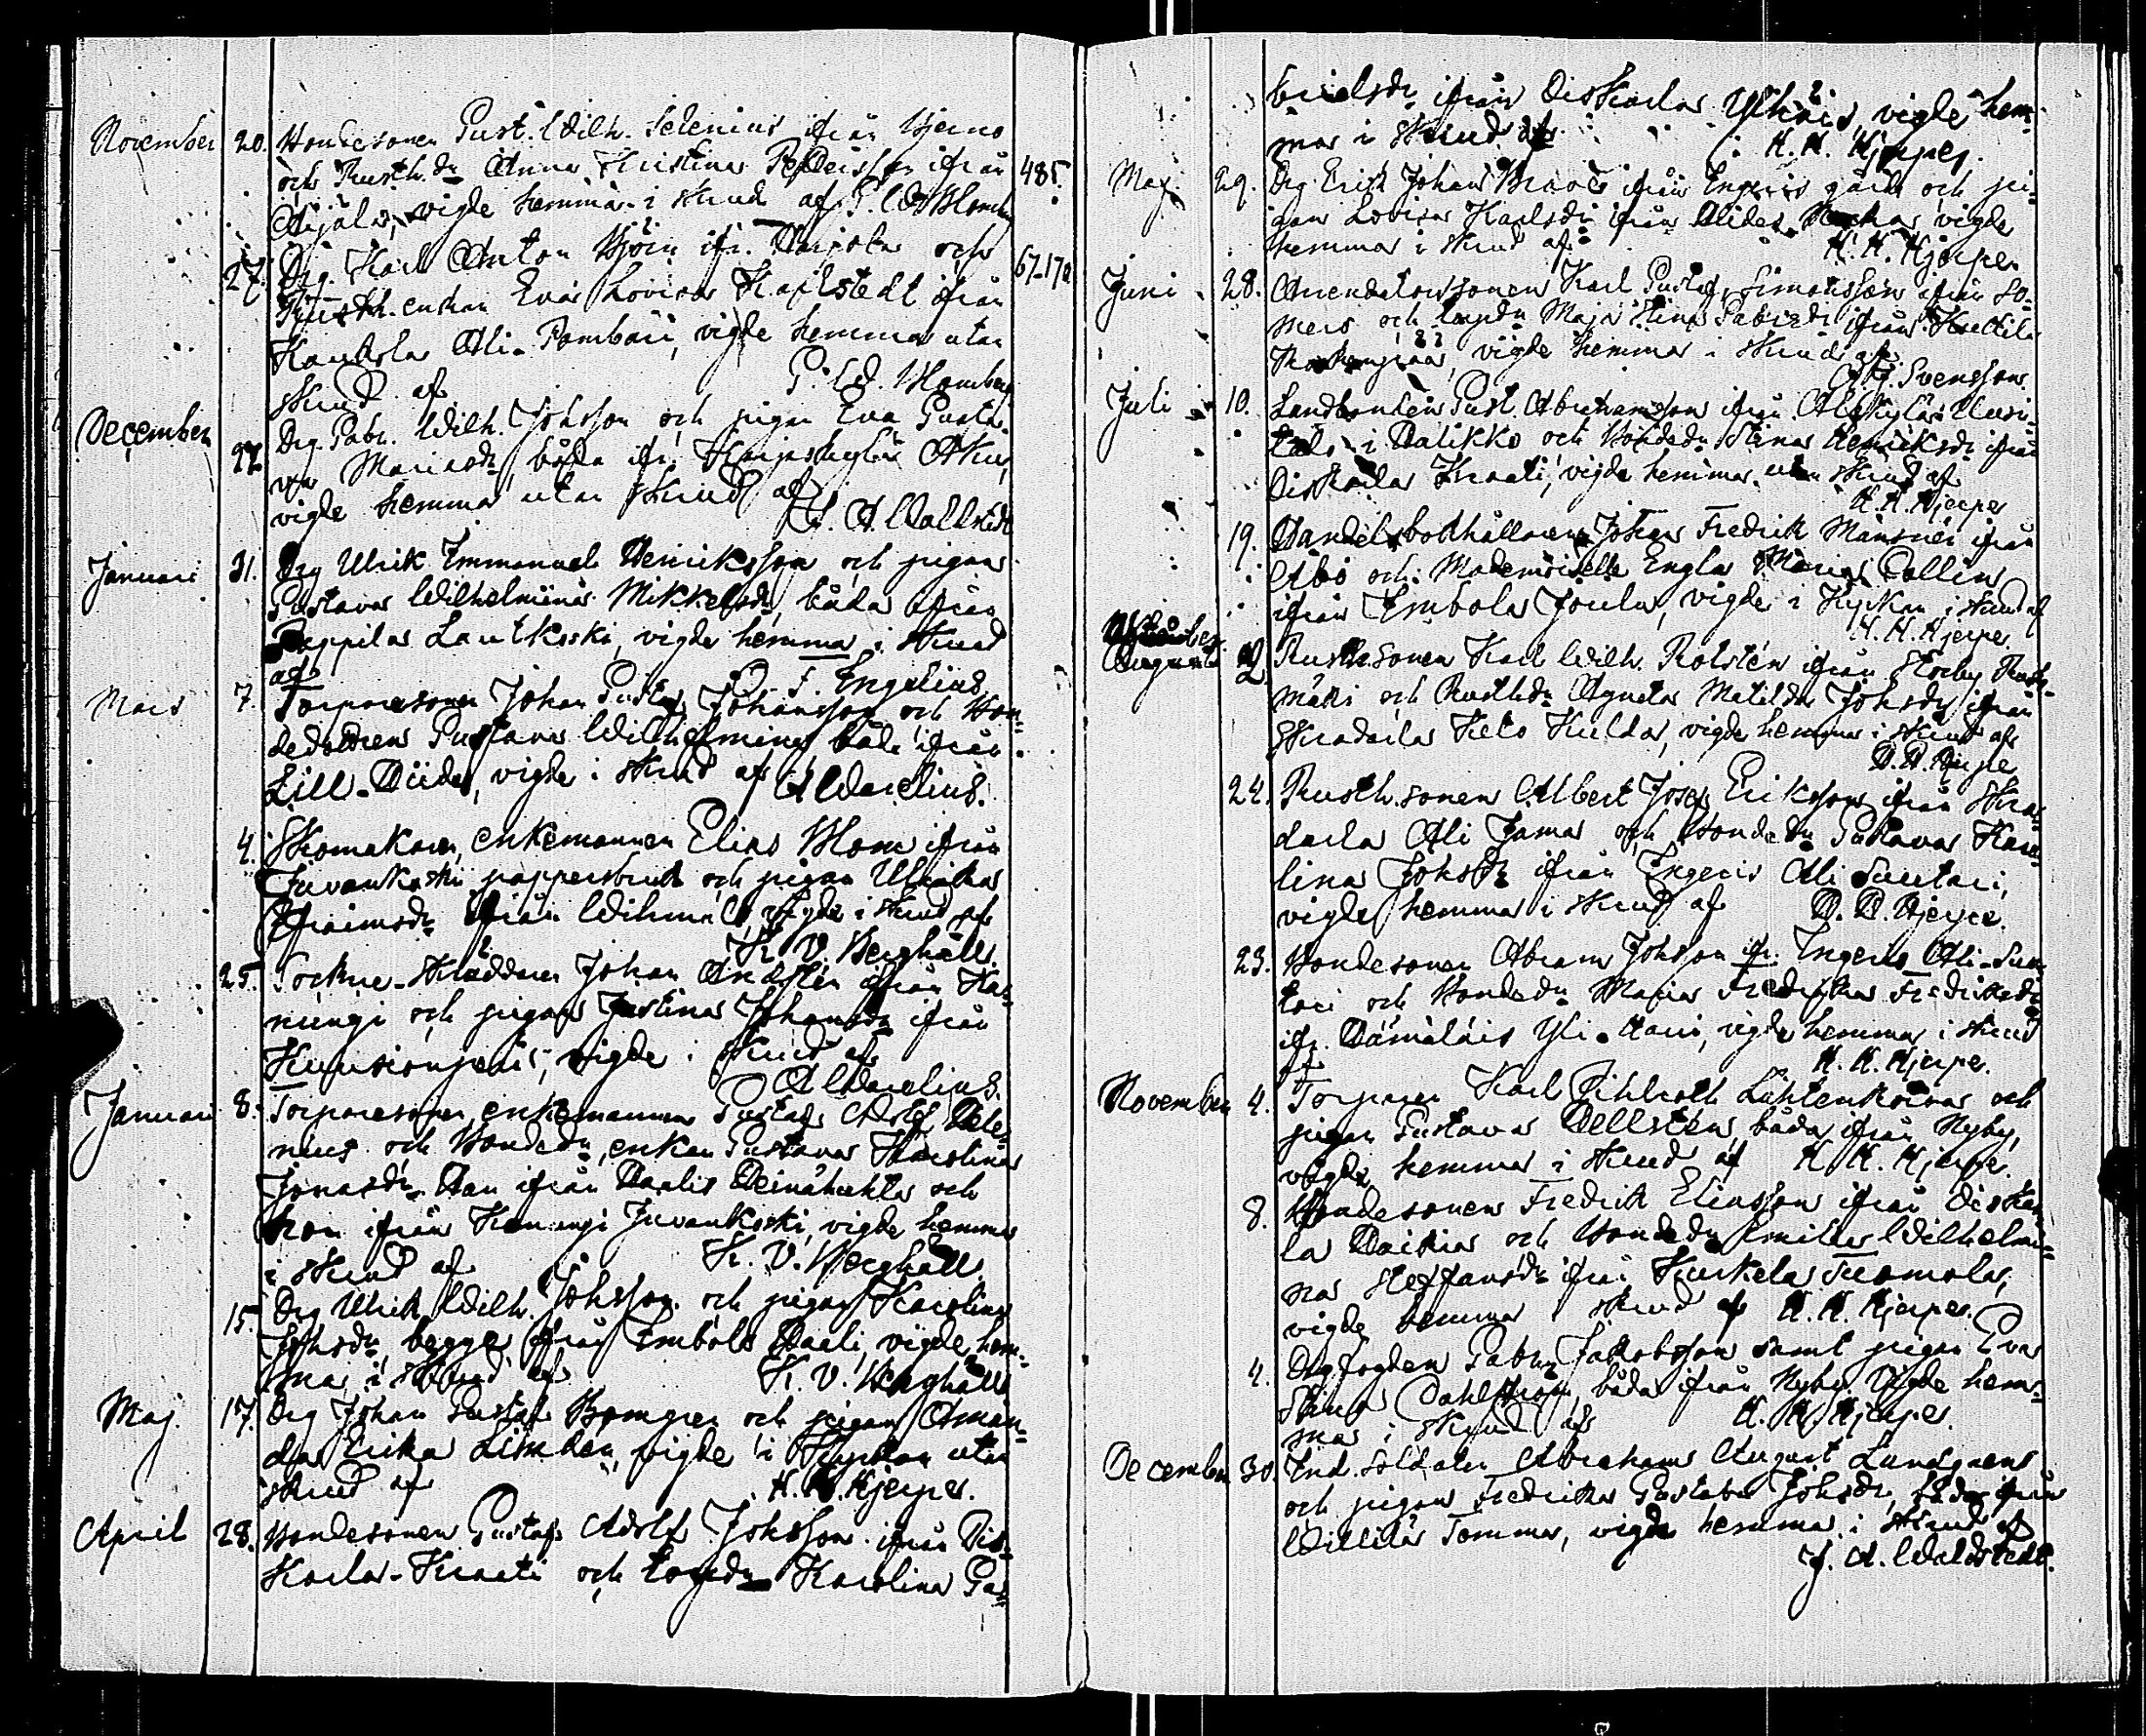 November 20. Bondesonen Gust. Wilh. Selenius ifrån Bjerno
och Rusth. dr Anna Kristina ifrån 485.
Äijälä, vigde hemma i Skrud af G. Ad. Blomberg
27. Drg. Karl Anton Björn ifr. och 67-170
Rusth. enkan Eva Lovisa Karlstedt ifrån
Kaukola Ali-Pombari, vigde hemma utan
Skrud af G. Ad. Blomberg
December 27. Drg. Gabr. Wilh. Johsson och pigan Eva Gusta-
va Mariasdr, båda ifr.
vigde hemma utan Skrud af
J. A. Wallstedt
Januari 31. Drg Ulrik Immanuel Henriksson och pigan
Gustava Wilhelmina Mikkelsdr, båda ifrån
Pappila Lautkoski, vigde hemma i Skrud
af F. Engelius
Mars 7. Torparesonen Johan Gustaf Johansson och Bon-
dedottren Gustava Wilhelmina både ifrån
Lill-Hiida, vigde i Skrud af A Warelius.
4. Skomakaren, enkemannen Elias Blom ifrån
Juvankoski pappersbruk och pigan Ulrika
Efraimsdr ifrån vigde i Skrud af
K. V. Berghäll.
25. Sockne-Skräddaren Johan ifrån Ka-
nungi och pigan Justina Johansdr ifrån
vigde i Skrud af
A Warelius.
Januari 8. Torparesonen, enkemannen Gustaf Adolf Hele-
nius och Bondedr, enkan Gustava Karolina
Jonasdr. Han ifrån och
hon ifrån Kanungi Juvankoski, vigde hemma
i Skrud af K. V. Berghäll.
15. Drg Ulrik Wilh. Johsson och pigan Karolina
Johsdr, begge ifrån Imbola Haali, vigde hem-
ma i Skrud af K. V. Berghäll
Maj. 17. Drg Johan Gustaf och pigan Aman-
da Erika Lindén, vigde i Kyrkan utan
Skrud af H. H. Hjerpe.
April 28. Bondesonen Gustaf Adolf Johsson ifrån Dis-
karla-Kraati och torpdr Karolina Ga-
brielsdr ifrån Diskarla vigde hem-
ma i Skrud af H. H. Hjerpe.
Maj. 29. Drg. Erik Johan ifrån Ingeris gård och pi-
gan Lovisa Karlsdr ifrån vigde
hemma i Skrud af H. H. Hjerpe
Juni 28. Arendatorssonen Karl Gustaf Simonsson ifrån So-
mero och torpdr Maja Stina Gabrsdr ifrån Kurkila
vigde hemma i Skrud af
Svensson.
Juli 10. Landbonden Gust. Abrahamsson ifrån
i Halikko och Bondedr Stina Henriksdr ifrån
Diskarla Kraati, vigde hemma utan Skrud af
H. H. Hjerpe
19. Handelsbodhållaren Johan Fredrik ifrån
Åbo och Mademoiselle Engla Maria Collin
ifrån Imbola Joula, vigde i Kyrkan i Skrud af
H. H. Hjerpe
Augusti 2. Rusth.sonen Karl Wilh. ifrån Storby
mäki och Rusth.dr Agneta Matilda Johsdr ifrån
Skradarla Kulda, vigde hemma i Skrud af
H. H. Hjerpe
24. Rusth.sonen Albert Josef Eriksson ifrån Skra-
darla Ali Jama och Bondedr Gustava Karo-
lina Johsdr ifrån Ingeris Ali Suutari,
vigde hemma i Skrud af H. H. Hjerpe.
23. Bondesonen Abram Johsson ifr. Ingeris Ali-Suu-
tari och Bondedr Maria Fredrika Fredriksdr
ifr. Hämäläis Yli-Kauri, vigde hemma i Skrud
af H. H. Hjerpe.
November 4. Torparen Karl Lähtenkorva och
pigan Gustava Hellstén båda ifrån Nyby,
vigde hemma i Skrud af H. H. Hjerpe.
8. Bondesonen Fredrik Eliasson ifrån Diskar-
la och Bondedr Emilia Wilhelmi-
na Steffansdr ifrån Kurkela Tuomola,
vigde hemma i Skrud af H. H. Hjerpe.
4. Drgfogden Gabr. Jakobsson samt pigan Eva
Stina Dahlström, båda ifrån Nyby. Vigde hem-
ma i Skrud af H. H. Hjerpe.
December 30. Ind. soldaten Abraham August Lundgren
och pigan Fredrika Gustava Johsdr, båda ifrån
Willilä Tomma, vigde hemma i Skrud af
J. A. Waldstedt.